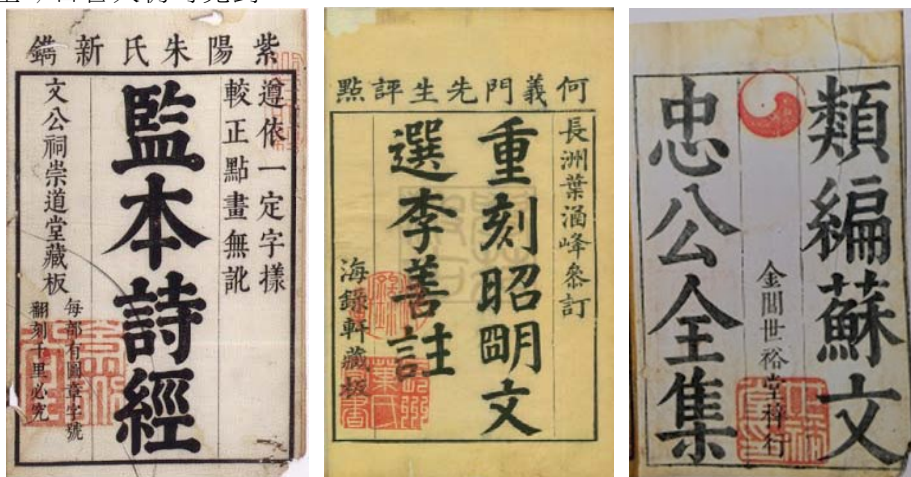 紫陽朱氏新鐫
遵依一定字樣
較正點畫無訛
監本詩經
文公祠崇道堂藏板
每部有圖章字號
翻刻千里必究
何義門先生評點
長洲葉涵峰叅訂
重刻昭明文
選李善註
海錄軒藏板
類編蘇文
金閶世裕堂梓行
忠公全集